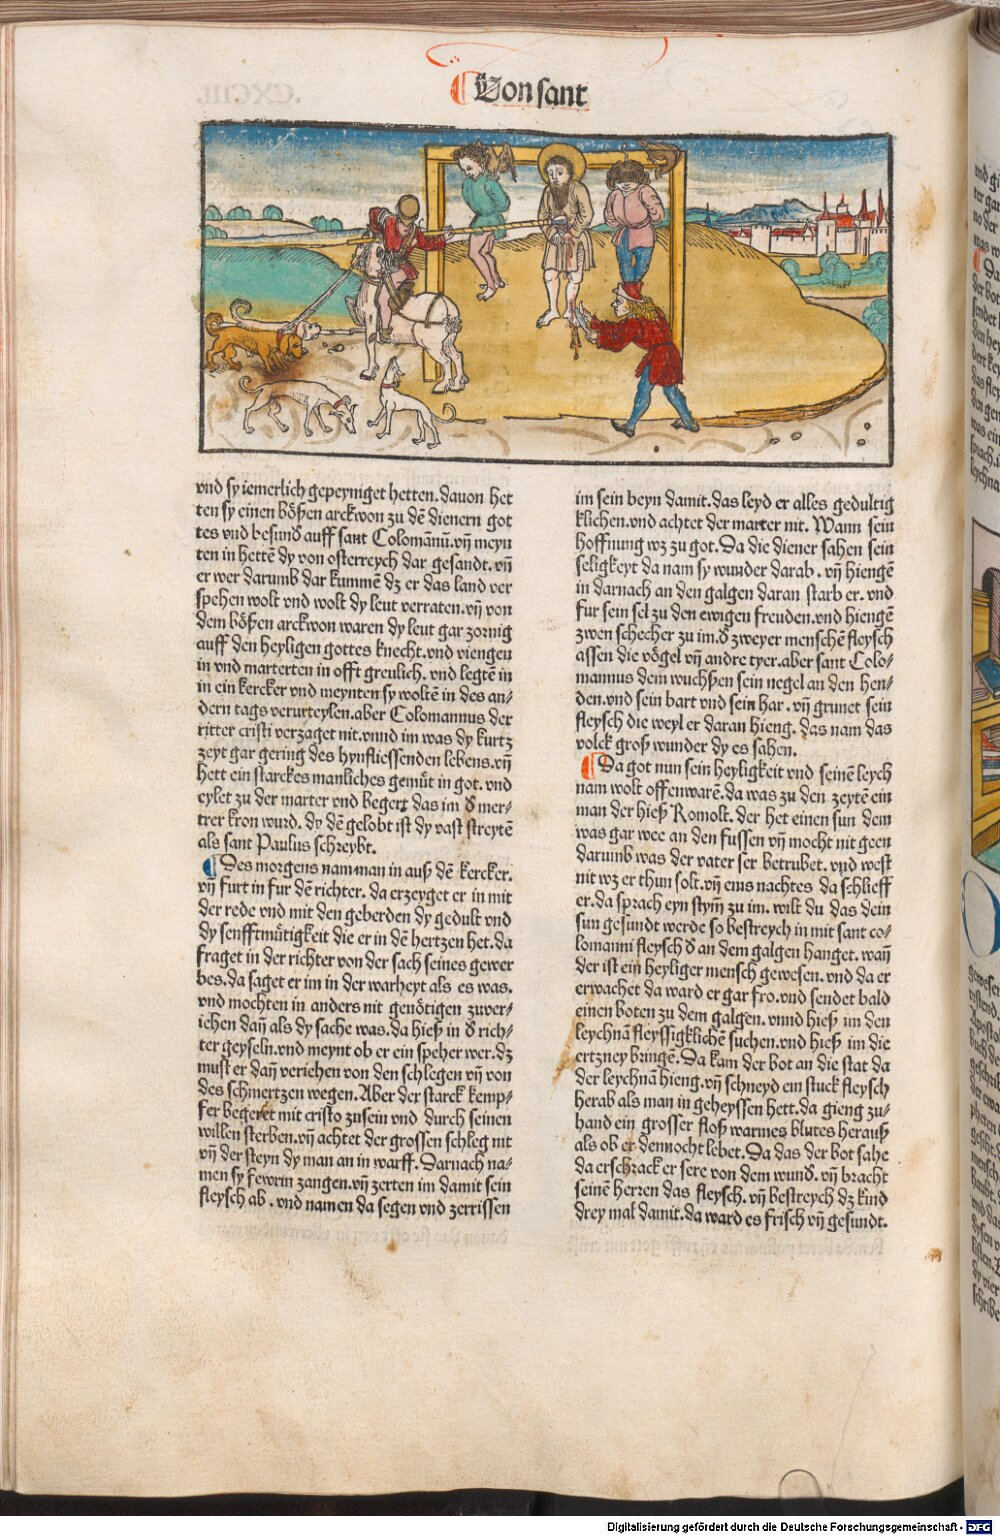 Von sant
vnd sy iemerlich gepeyniget hetten. dauon het
ten sy einen bößen arckwon zu dē dienern got
tes vnd besund auff sant Colomānū. vn̄ meyn
ten in hettē dy von osterreych dar gesandt. vn̄
er wer darumb dar kummē dz er das land ver
spehen wolt vnd wolt dy leut verraten. vn̄ von
dem bößen arckwon waren dy leut gar zornig
auff den heyligen gottes knecht. vnd viengen
in vnd marterten in offt greulich. vnd legtē in
in ein kercker vnd meynten sy woltē in des an⸗
dern tags verurteylen. aber Colomannus der
ritter cristi verzaget nit. vnnd im was dy kurtz
zeyt gar gering des hynfliessenden lebens. vn̄
hett ein starckes manliches gemüt in got. vnd
eylet zu der marter vnd begert das im d̄ mer⸗
trer kron wurd. dy dē gelobt ist dy vast streytē
als sant Paulus schreybt.
Des morgens nam man in auß dē kercker.
vn̄ furt in fur dē richter. da erzeyget er in mit
der rede vnd mit den geberden dy gedult vnd
dy senfftmütigkeit die er in dē hertzen het. da
fraget in der richter von der sach seines gewer
bes. da saget er im in der warheyt als es was.
vnd mochten in anders nit genötigen zuver⸗
iehen dan̄ als dy sache was. da hieß in d̄ rich⸗
ter geyseln. vnd meynt ob er ein speher wer. dz
must er dan̄ veriehen von den schlegen vn̄ von
des schmertzen wegen. Aber der starck kemp⸗
fer begeret mit cristo zusein vnd durch seinen
willen sterben. vn̄ achtet der grossen schleg nit
vn̄ der steyn dy man an in warff. Darnach na⸗
men sy fewrin zangen. vn̄ zerten im damit sein
fleysch ab. vnd namen da segen vnd zerrissen
im sein beyn damit. das leyd er alles gedultig
klichen. vnd achtet der marter nit. Wann sein
hoffnung wz zu got. Da die diener sahen sein
seligkeyt da nam sy wunder darab. vn̄ hiengē
in darnach an den galgen daran starb er. vnd
fur sein sel zu den ewigen freuden. vnd hiengē
zwen schecher zu im. d̄ zweyer menschē fleysch
assen die vögel vn̄ andre tyer. aber sant Colo⸗
mannus dem wuchßen sein negel an den hen⸗
den. vnd sein bart vnd sein har. vn̄ grunet sein
fleysch die weyl er daran hieng. das nam das
volck groß wunder dy es sahen.
Da got nun sein heyligkeit vnd seinē leych
nam wolt offenwarē. da was zu den zeytē ein
man der hieß Romolt. der het einen sun dem
was gar wee an den fussen vn̄ mocht nit geen
darumb was der vater ser betrubet. vnd west
nit wz er thun solt. vn̄ eins nachtes da schlieff
er. da sprach eyn stym̄ zu im. wilt du das dein
sun gesundt werde so bestreych in mit sant co⸗
lomanni fleysch d̄ an dem galgen hanget. wan̄
der ist ein heyliger mensch gewesen. vnd da er
erwachet da ward er gar fro. vnd sendet bald
einen boten zu dem galgen. vnnd hieß im den
leychnā fleyssigklichē suchen. vnd hieß im die
ertzney bringē. Da kam der bot an die stat da
der leychnā hieng. vn̄ schneyd ein stuck fleysch
herab als man in geheyssen hett. da gieng zu⸗
hand ein grosser floß warmes blutes herauß
als ob er dennocht lebet. Da das der bot sahe
da erschrack er sere von dem wund̄. vn̄ bracht
seinē herren das fleysch. vn̄ bestreych dz kind
drey mal damit. da ward es frisch vn̄ gesundt.
Digitalisierung gefördert durch die Deutsche Forschungsgemeinschaft - DFG